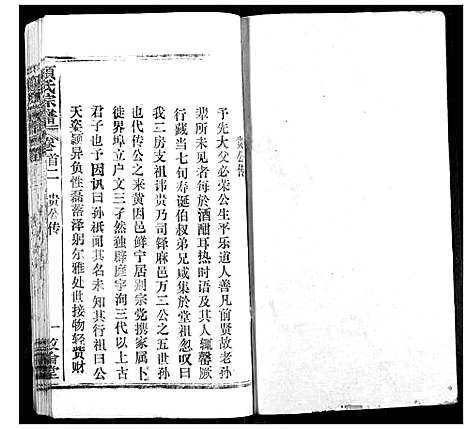 貴公传
予先大父必荣公生平乐道人善凡前贤故老孙
辈所未见者每於酒酣耳热时语及其人辄罄厥
行藏当七旬寿诞伯叔弟兄咸集於堂祖忽叹曰
我三房支祖讳贵乃司铎麻邑万二公之五世孙
也代传公之来黄因邑鲜宁居别宗党携家属卜
徙界埠立户文三孑然独辟庭宇洵三代以上古
君子也予因讯曰孙祇闻其名未知其行祖曰公
天姿颖异负性磊落泽躬尔雅处世接物轻贵财
氏宗谱 卷首二 贵公传 一 敦伦堂